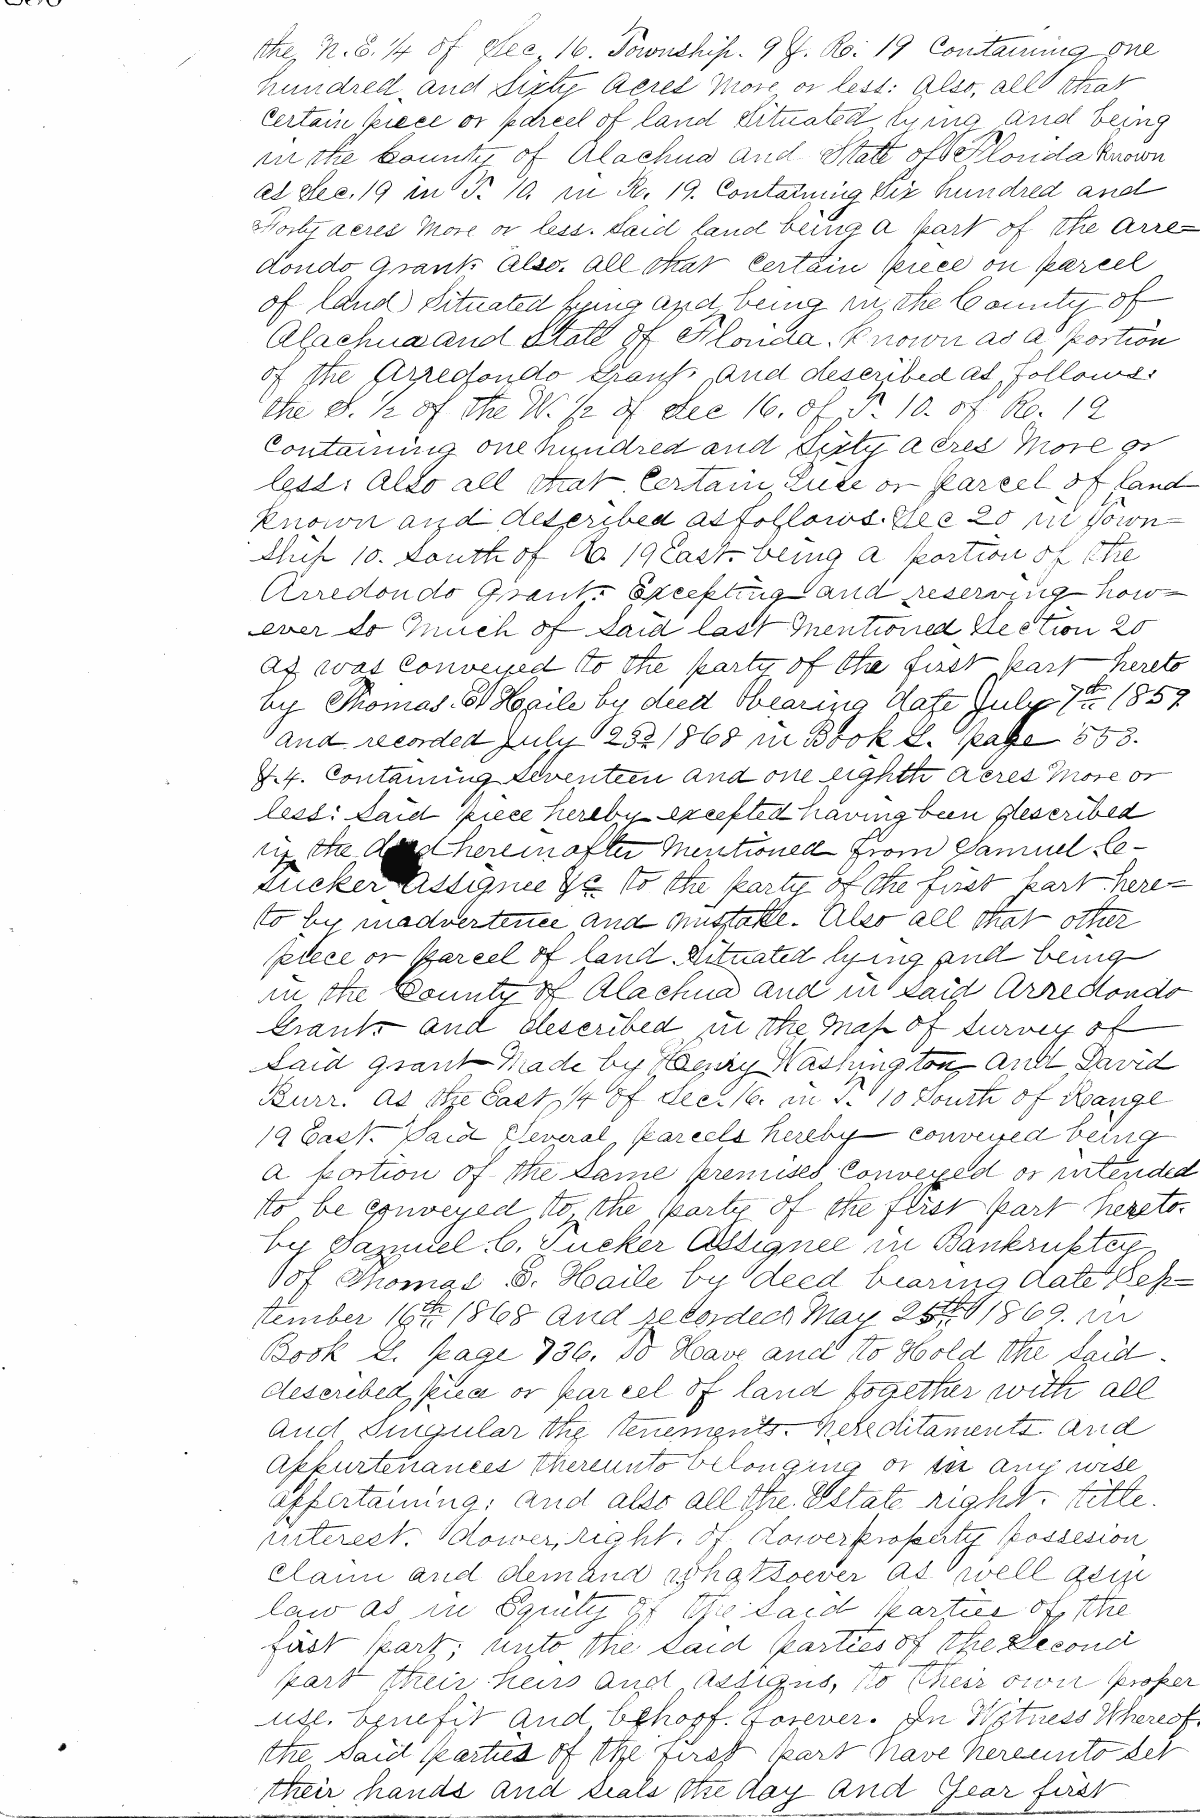 the N.E. 1/4 of Sec. 16. Township. 9 S. R. 19 Containing one
hundred and Sixty Acres More or less: Also, all that
Certain piece or parcel of land Situated lying and being
in the County of Alachua and State of Florida Known
as Sec. 19 in T. 10. in R. 19. Containing Six hundred and
Forty acres More or less. Said land being a part of the Arre=
dondo Grant. Also. all that Certain piece on parcel
of land Situated lying and being in the County of
Alachua and State of Florida. Known as a portion
of the Arredondo Grant, and described as follows:
the S. 1/2 of the W. 1/2 of Sec 16. of T. 10. of R. 19
Containing one hundred and Sixty acres More or
less: Also all that Certain Piece or parcel of land
Known and described as follows. Sec 20 in Town=
Ship 10. South of R. 19 East. being a portion of the
Arredondo Grant. Excepting and reserving how=
ever So Much of Said last Mentioned Section 20
as was Conveyed to the party of the first part hereto
by Thomas. E. Haile by deed bearing date July 7th 1859
and recorded July 23d 1868 in Book L. page 553.
& 4. Containing Seventeen and one eighth Acres More or
less: Said piece hereby excepted having been described
in the deed hereinafter Mentioned from Samuel C-
Tucker Assignee &c to the party of the first part here=
to by inadvertence and mistake. Also all that other
piece or parcel of land Situated lying and being
in the County of Alachua and in Said Arredondo
Grant. and described in the Map of Survey of
Said grant Made by Henry Washington and David
Burr. as the East 1/4 of Sec. 16. in T. 10 South of Range
19 East. Said Several parcels hereby conveyed being
a portion of the Same premises Conveyed or intended
to be conveyed to the party of the first part hereto.
by Samuel. C. Tucker Assignee in Bankruptcy
of Thomas E. Haile by deed bearing date Sep=
tember 16th 1868 and recorded May 25th 1869. in
Book L. page 736. To Have and to Hold the Said
described piece or parcel of land together with all
and Singular the tenements. hereditaments and
Appurtenances thereunto belonging or in any wise
appertaining; and also all the Estate right. title.
interest. dower, right. of dower property possesion
Claim and demand whatsoever as well as in
law as in Equity of the Said parties of the
first part; unto the Said parties of the Second
part their heirs and assigns, to their own proper
use. benefit and behoof. forever. In Witness Whereof.
the Said parties of the first part have hereunto Set
their hands and Seals the day and Year first